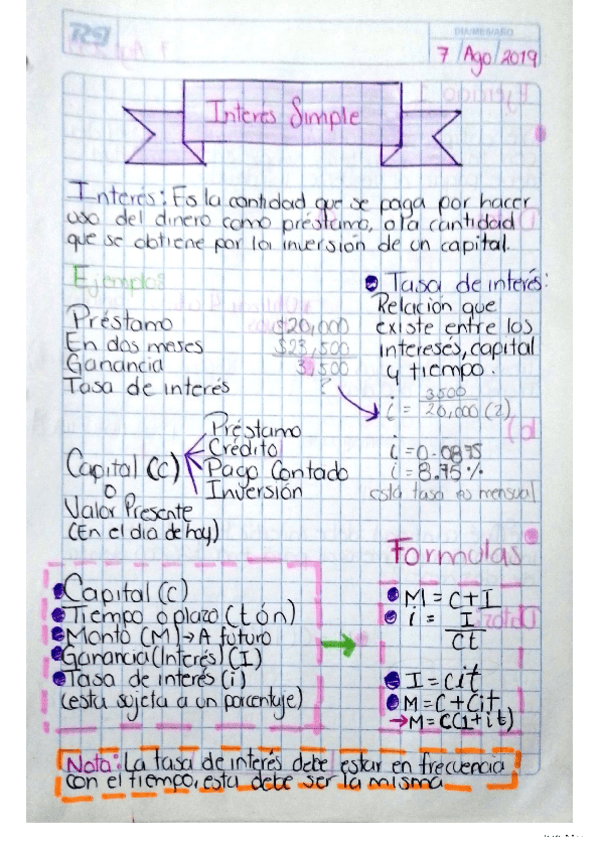 DIA/MES/AÑO
7 / Ago / 2019
Interes Simple
Interés: Es la cantidad que se paga por hacer
uso del dinero como préstamo, o la cantidad
que se obtiene por la inversión de un capital.
Ejemplos
Préstamo $20,000
En dos meses $23,500
Ganancia 3,500
Tasa de interés ?
Tasa de interés:
Relación que
existe entre los
intereses, capital
y tiempo.
i = 3500 / 20,000 (2)
i = 0.0875
i = 8.75 %
esta tasa es mensual
Capital (C)
o
Valor Presente
(En el dia de hoy)
Préstamo
Crédito
Pago Contado
Inversión
Capital (C)
Tiempo o plazo (t ó n)
Monto (M) → A futuro
Ganancia (Interés) (I)
Tasa de interés (i)
(esta sujeta a un porcentaje)
Formulas
M = C + I
i = I / Ct
I = Cit
M = C + Cit
→ M = C(1+it)
Nota: La tasa de interés debe estar en frecuencia
con el tiempo, esta debe ser la misma